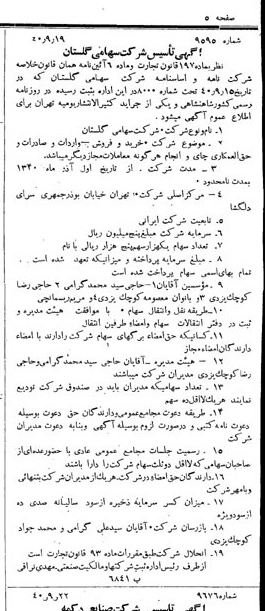 صفحه ۵
شماره ۹۵۹۵ ۴۰٫۹٫۱۹
آگهی تأسیس شرکت سهامی گلستان
نظر بماده ۱۹۷ قانون تجارت و ماده ۶ آئین نامه همان قانون خلاصه
شرکت نامه و اساسنامه شرکت سهامی گلستان که در
تاریخ ۴۰٫۹٫۱۵ تحت شماره ۸۰۰۰ در این اداره بثبت رسیده در روزنامه
رسمی کشور شاهنشاهی و یکی از جراید کثیرالانتشار یومیه تهران برای
اطلاع عموم آگهی میشود.
۱ – نام و نوع شرکت: شرکت سهامی گلستان
۲ – موضوع شرکت: خرید و فروش – واردات و صادرات و
حق العملکاری چای و انجام هرگونه معاملات مجاز دیگر میباشد.
۳ – مدت شرکت. از تاریخ اول آذر ماه ۱۳۴۰
بمدت نامحدود.
۴ – مرکز اصلی شرکت: تهران خیابان بوذرجمهری سرای
دلگشا
۵ – تابعیت شرکت ایرانی
۶ – سرمایه شرکت مبلغ پنج میلیون ریال
۷ – تعداد سهام یکهزار سهم پنج هزار ریالی با نام
۸ – مبلغ سرمایه پرداخته و میزانیکه تعهد شده است.
تمام بهای اسمی سهام پرداخت شده است
۹ – مؤسسین آقایان ۱ – حاجی سید محمد گرامی ۲ حاجی رضا
کوچک یزدی ۳ و بانوان معصومه کوچک یزدی ۴ و مریم بر سمانچی
۱۰ – طریقه نقل و انتقال سهام: با موافقت هیئت مدیره و
ثبت در دفتر انتقالات سهام و امضاء طرفین انتقال
۱۱ – کسانیکه حق امضاء برگهای سهام شرکت را دارند با امضاء
دارندگان امضاء مجاز
۱۲ – هیئت مدیره – آقایان حاجی سید محمد گرامی و حاجی
رضا کوچک یزدی مدیران شرکت میباشند
۱۳ – تعداد سهامیکه مدیران باید در صندوق شرکت تودیع
نمایند هر یک لااقل ده سهم
۱۴ – طریقه دعوت مجامع عمومی و دارندگان حق دعوت بوسیله
دعوت نامه کتبی و در صورت لزوم بوسیله آگهی وبنا به دعوت مدیران
شرکت
۱۵ – رسمیت جلسات مجامع عمومی عادی با حضور عده ای از
صاحبان سهامی که لااقل دو ثلث سهام شرکت را دارا باشند
۱۶ – دارندگان حق امضاء در شرکت. هر یک از مدیران شرکت بتنهائی
و با مهر شرکت
۱۷ – میزان کسر سرمایه ذخیره از سود سالیانه صدی ده
از سود ویژه
۱۸ – بازرسان شرکت: آقایان سید علی گرامی و محمد جواد
کوچک یزدی
۱۹ – انحلال شرکت طبق مقررات ماده ۹۳ قانون تجارت است
از طرف رئیس اداره ثبت شرکتها و مالکیت صنعتی. مهدی نراقی
ب ۶۸۴۱
شماره ۹۶۷۶ ۴۰٫۹٫۲۲
آگهی تأسیس شرکت صنایع